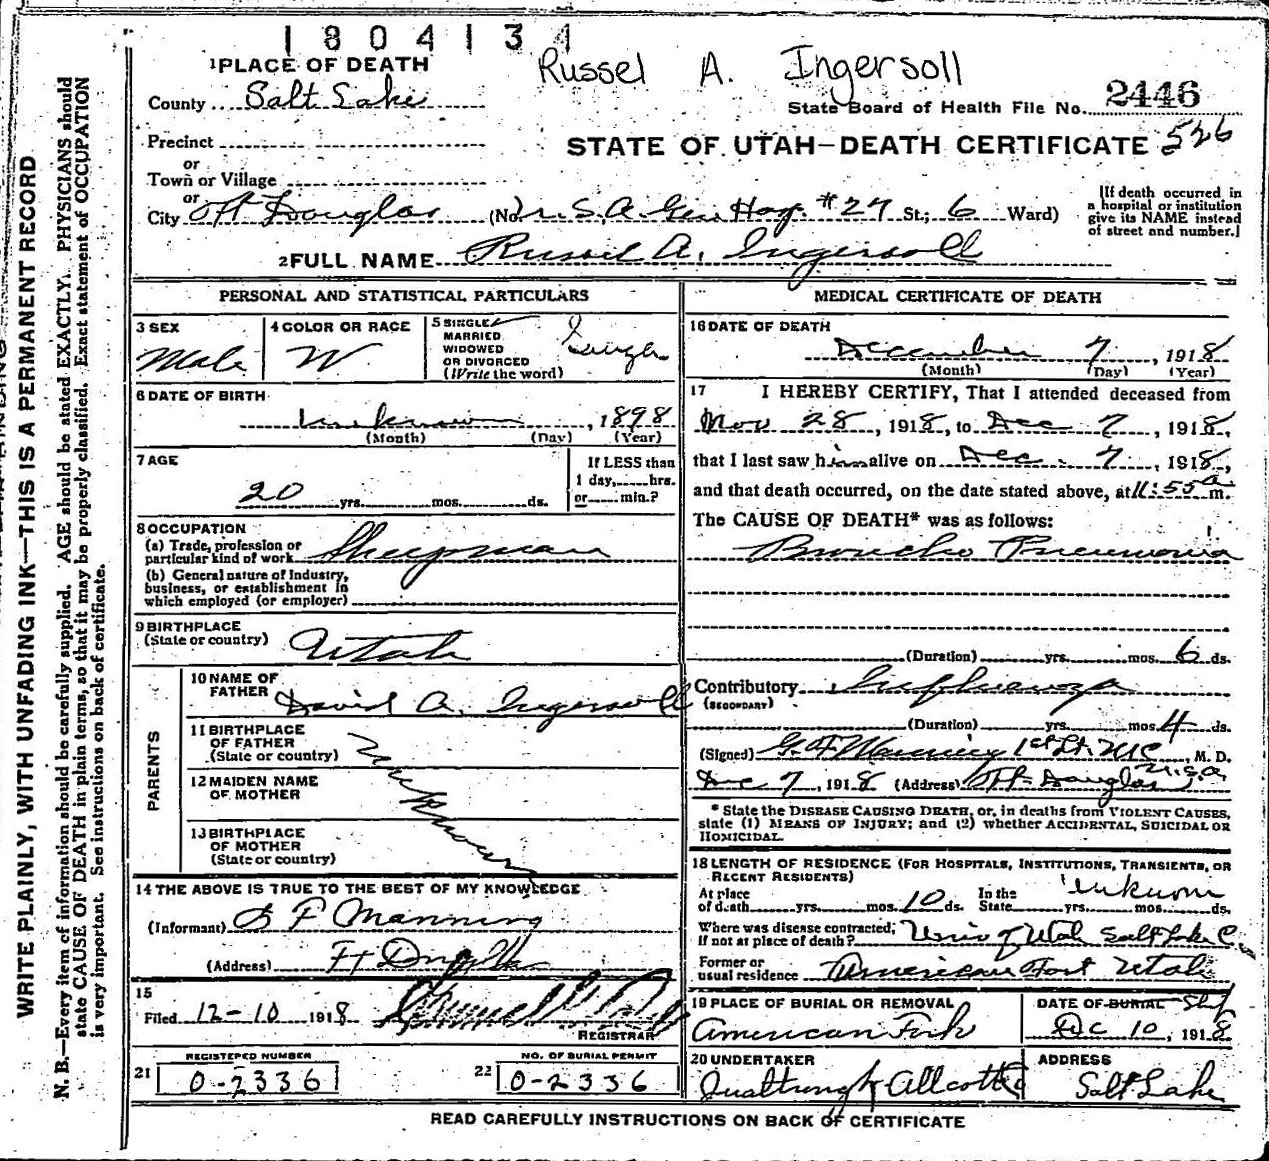 1804134
Russel A. Ingersoll
1 PLACE OF DEATH
County Salt Lake
State Board of Health File No. 2446
Precinct
STATE OF UTAH—DEATH CERTIFICATE 526
or
Town or Village
or
City Ft Douglas (No. U.S.A. Gen Hosp. #27 St.; 6 Ward)
[If death occurred in
a hospital or institution
give its NAME instead
of street and number.]
2 FULL NAME Russel A. Ingersoll
PERSONAL AND STATISTICAL PARTICULARS
3 SEX
Male
4 COLOR OR RACE
W
5 SINGLE
MARRIED
WIDOWED
OR DIVORCED
(Write the word)
Single
6 DATE OF BIRTH
unknown, 1898
(Month) (Day) (Year)
7 AGE
20 yrs. mos. ds.
If LESS than
1 day, hrs.
or min.?
8 OCCUPATION
(a) Trade, profession or
particular kind of work Sheepman
(b) General nature of Industry,
business, or establishment in
which employed (or employer)
9 BIRTHPLACE
(State or country) Utah
PARENTS
10 NAME OF
FATHER David A. Ingersoll
11 BIRTHPLACE
OF FATHER
(State or country)
12 MAIDEN NAME
OF MOTHER
13 BIRTHPLACE
OF MOTHER
(State or country)
Unknown
14 THE ABOVE IS TRUE TO THE BEST OF MY KNOWLEDGE
(Informant) G F Manning
(Address) Ft Douglas
15
Filed 12-10 1918
REGISTRAR
REGISTERED NUMBER
21 0-2336
NO. OF BURIAL PERMIT
22 0-2336
MEDICAL CERTIFICATE OF DEATH
16 DATE OF DEATH
December 7, 1918
(Month) (Day) (Year)
17 I HEREBY CERTIFY, That I attended deceased from
Nov 28, 1918, to Dec 7, 1918,
that I last saw him alive on Dec. 7, 1918,
and that death occurred, on the date stated above, at 11:55 a m.
The CAUSE OF DEATH* was as follows:
Broncho Pneumonia
(Duration) yrs. mos. 6 ds.
Contributory Influenza
(SECONDARY)
(Duration) yrs. mos. 4 ds.
(Signed) G. F. Manning 1st Lt. MC, M. D.
U.S.A.
Dec 7, 1918 (Address) Ft. Douglas
*State the DISEASE CAUSING DEATH, or, in deaths from VIOLENT CAUSES,
state (1) MEANS OF INJURY; and (2) whether ACCIDENTAL, SUICIDAL OR
HOMICIDAL.
18 LENGTH OF RESIDENCE (FOR HOSPITALS, INSTITUTIONS, TRANSIENTS, OR
RECENT RESIDENTS)
At place
of death yrs. mos. 10 ds.
In the
State yrs. mos. ds.
unknown
Where was disease contracted,
if not at place of death? Univ of Utah Salt Lake C.
Former or
usual residence American Fort Utah
19 PLACE OF BURIAL OR REMOVAL
American Fork
DATE OF BURIAL Ship
Dec 10, 1918
20 UNDERTAKER
Allcott
ADDRESS
Salt Lake
READ CAREFULLY INSTRUCTIONS ON BACK OF CERTIFICATE
WRITE PLAINLY, WITH UNFADING INK—THIS IS A PERMANENT RECORD
N. B.—Every item of information should be carefully supplied. AGE should be stated EXACTLY. PHYSICIANS should
state CAUSE OF DEATH in plain terms, so that it may be properly classified. Exact statement of OCCUPATION
is very important. See instructions on back of certificate.